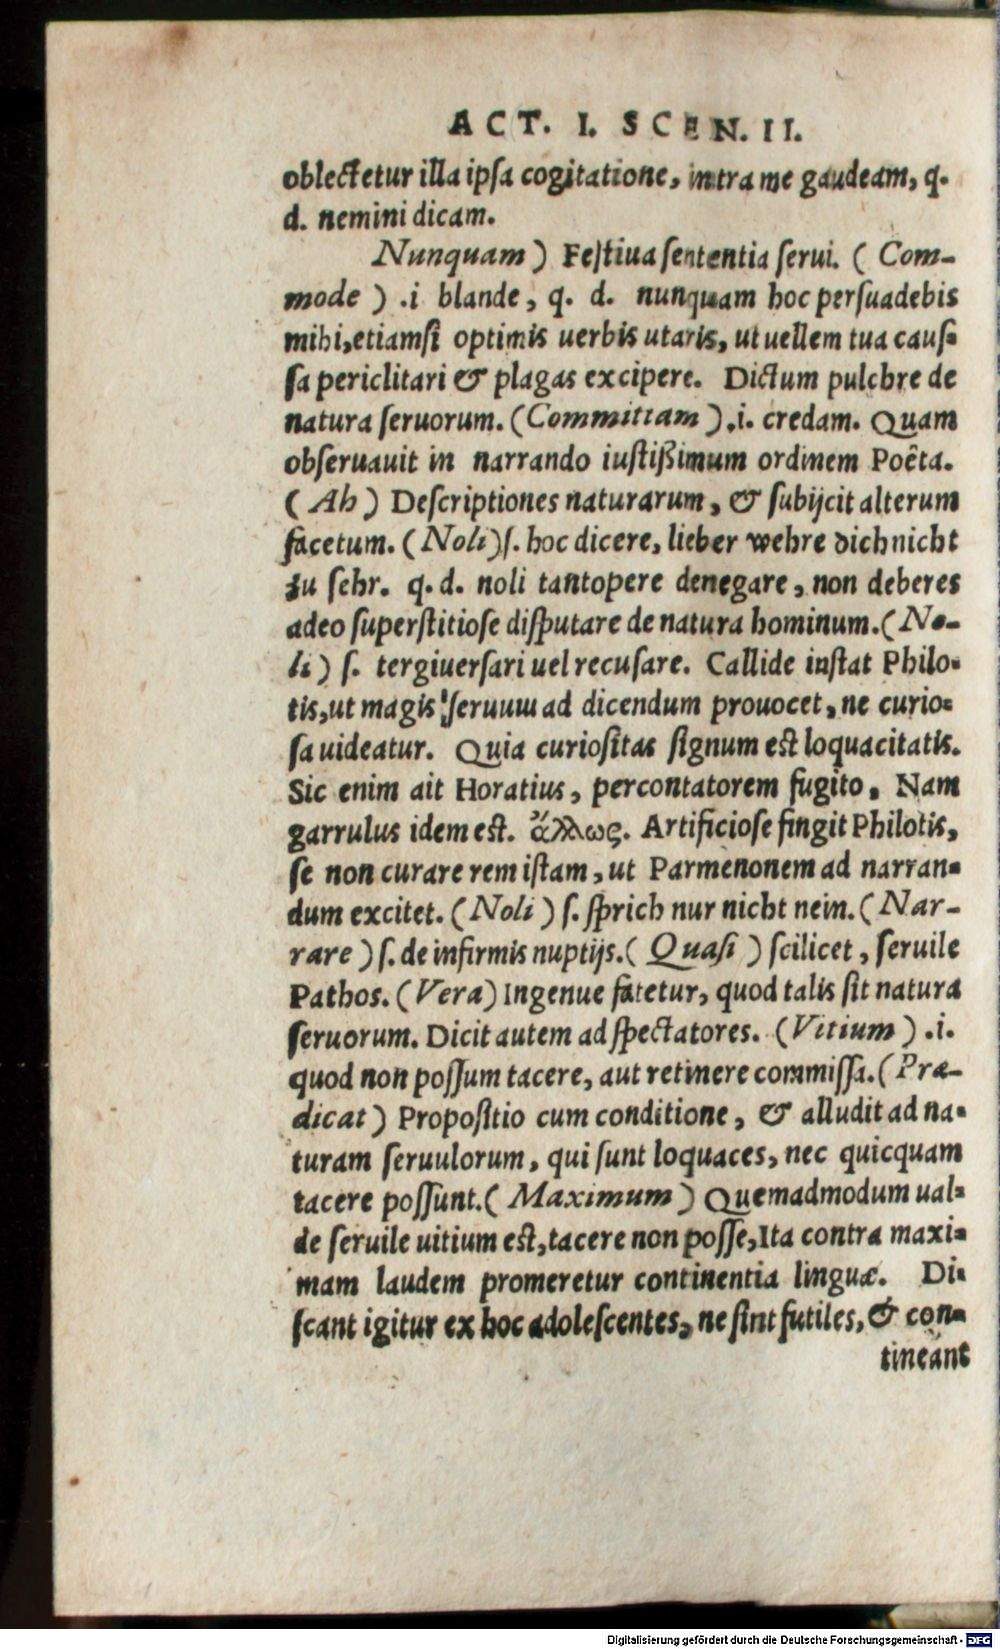 ACT. I. SCEN. II.
oblectetur illa ipsa cogitatione, intra me gaudeam, q.
d. nemini dicam.
Nunquam ) Festiua sententia serui. ( Com-
mode ) .i blande, q. d. nunquam hoc persuadebis
mihi, etiamsi optimis uerbis utaris, ut uellem tua caus-
sa periclitari & plagas excipere. Dictum pulchre de
natura seruorum. (Committam ) .i. credam. Quam
obseruauit in narrando iustißimum ordinem Poêta.
( Ah ) Descriptiones naturarum, & subijcit alterum
facetum. (Noli) s. hoc dicere, lieber wehre dich nicht
zu sehr. q. d. noli tantopere denegare, non deberes
adeo superstitiose disputare de natura hominum. (No-
li) s. tergiuersari uel recusare. Callide instat Philo-
tis, ut magis seruum ad dicendum prouocet, ne curio-
sa uideatur. Quia curiositas signum est loquacitatis.
Sic enim ait Horatius, percontatorem fugito. Nam
garrulus idem est. ἄλλως. Artificiose fingit Philotis,
se non curare rem istam, ut Parmenonem ad narran-
dum excitet. (Noli ) s. sprich nur nicht nein. (Nar-
rare ) s. de infirmis nuptijs. ( Quasi ) scilicet, seruile
Pathos. (Vera) Ingenue fatetur, quod talis sit natura
seruorum. Dicit autem ad spectatores. (Vitium ) .i.
quod non possum tacere, aut retinere commissa. (Præ-
dicat ) Propositio cum conditione, & alludit ad na-
turam seruulorum, qui sunt loquaces, nec quicquam
tacere possunt. ( Maximum ) Quemadmodum ual-
de seruile uitium est, tacere non posse, Ita contra maxi-
mam laudem promeretur continentia linguæ. Di-
scant igitur ex hoc adolescentes, ne sint futiles, & con-
tineant
Digitalisierung gefördert durch die Deutsche Forschungsgemeinschaft - DFG